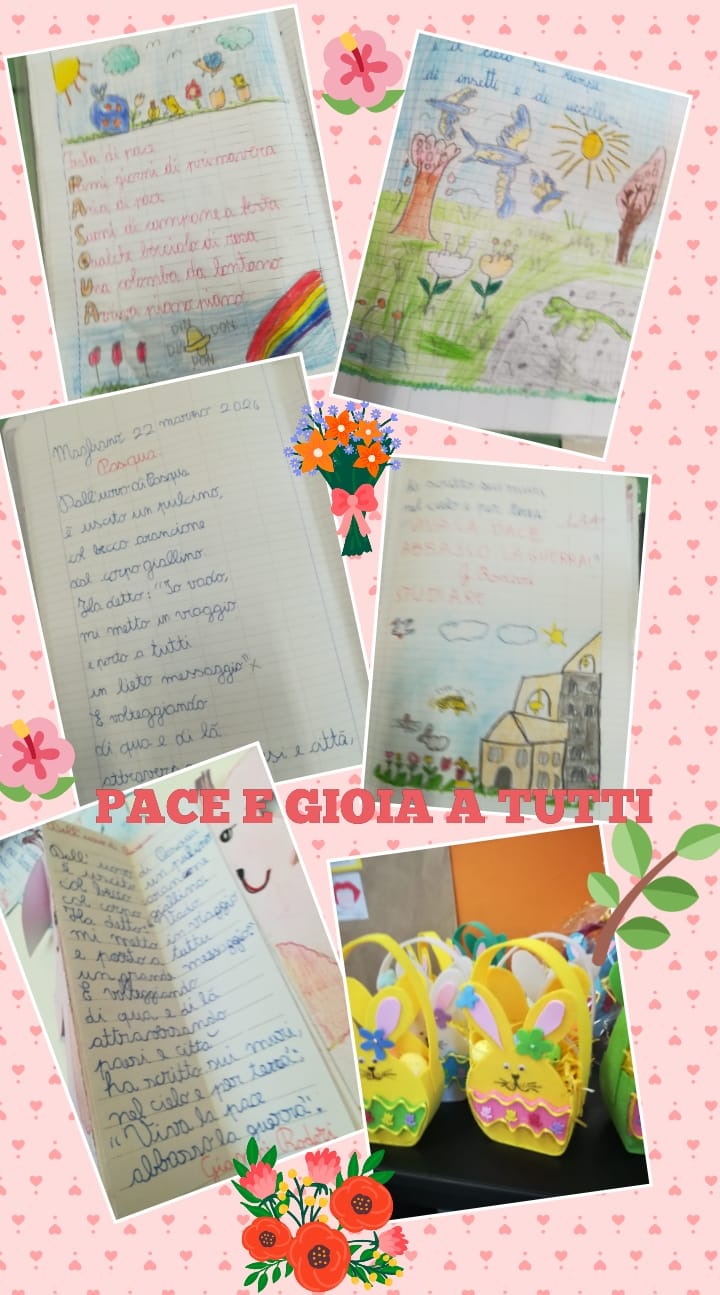 Festa di pace
Primi giorni di primavera
Aria di pace
Suoni di campane a festa
Qualche bocciolo di rosa
Una colomba da lontano
Arriva piano piano
DIN DON
DIN
DON
e il cielo si riempie
di insetti e di uccellini
Magliano 22 marzo 2024
Pasqua
Dall'uovo di Pasqua
è uscito un pulcino,
col becco arancione
dal corpo giallino
Ha detto: "Io vado,
mi metto in viaggio
e porto a tutti
un lieto messaggio"
E volteggiando
di qua e di là
attraverso si e città,
ha scritto sui muri
nel cielo e per terra
VIVA LA PACE
ABBASSO LA GUERRA!"
STUDIARE
PACE E GIOIA A TUTTI
Dall'uovo di Pasqua
È uscito un pulcino
Col becco arancione
Col corpo
Ha detto: Vado
mi metto in viaggio
e porto a tutti
un grande messaggio:
E volteggiando
di qua e di là
attraversando
paesi e città
ha scritto sui muri,
nel cielo e per terra:
"Viva la pace
abbasso la guerra".
Gia Rodari